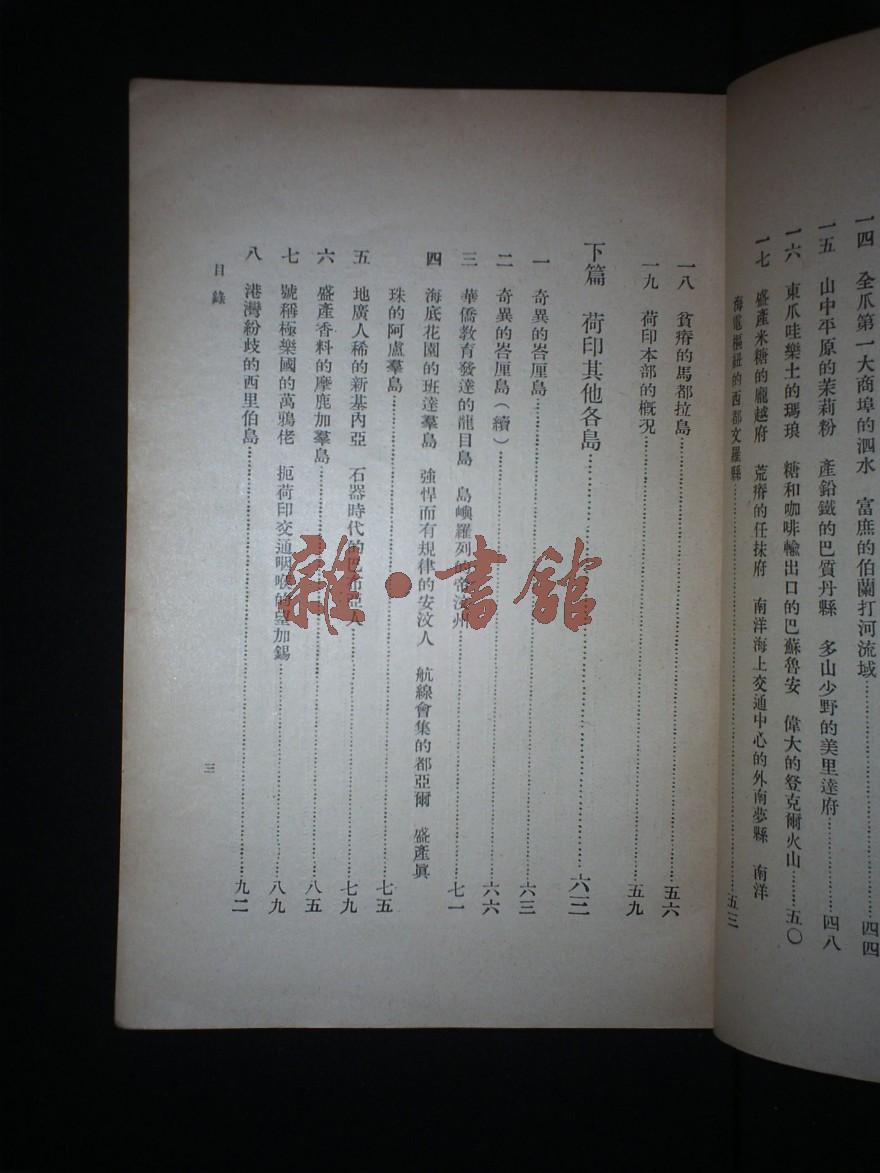 一四　全爪第一大商埠的泗水　富庶的伯蘭打河流域……四四
一五　山中平原的茉莉粉　產鉛鐵的巴質丹縣　多山少野的美里達府……四八
一六　東爪哇樂土的瑪琅　糖和咖啡輸出口的巴蘇魯安　偉大的登克爾火山……五〇
一七　盛產米糖的龐越府　荒瘠的任抹府　南洋海上交通中心的外南夢縣　南洋
海電樞紐的西都文羅縣……五三
一八　貧瘠的馬都拉島……五六
一九　荷印本部的概況……五九
下篇　荷印其他各島……六三
一　奇異的峇厘島……六三
二　奇異的峇厘島（續）……六六
三　華僑教育發達的龍目島　島嶼羅列的帝汶州……七一
四　海底花園的班達羣島　強悍而有規律的安汶人　航線會集的都亞爾　盛產眞
珠的阿盧羣島……七五
五　地廣人稀的新基內亞　石器時代的巴布亞人……七九
六　盛產香料的摩鹿加羣島……八五
七　號稱極樂國的萬鴉佬　扼荷印交通咽喉的望加錫……八九
八　港灣紛歧的西里伯島……九二
目錄
三
雜·書館